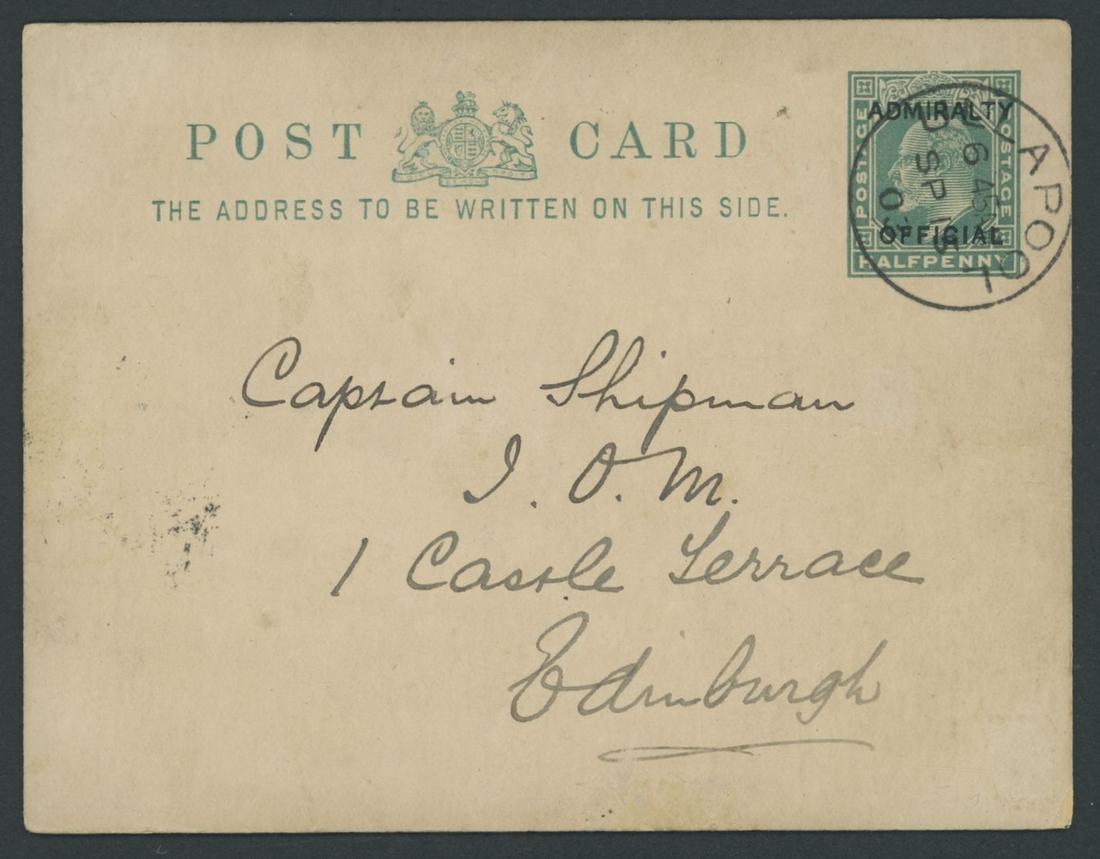 POST CARD
THE ADDRESS TO BE WRITTEN ON THIS SIDE.
ADMIRALTY
POSTAGE POSTAGE
OFFICIAL
HALFPENNY
ULLAPOOL
SP 15
03
Captain Shipman
I. O. M.
1 Castle Terrace
Edinburgh